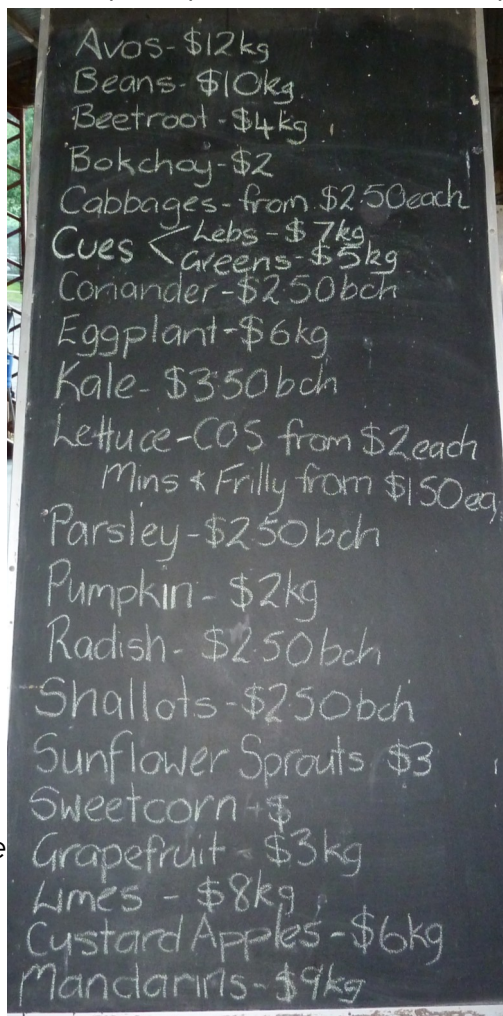 Avos-$12kg
Beans-$10kg
Beetroot-$4kg
Bokchoy-$2
Cabbages-from $2.50each
Cues < Lebs-$7kg
Greens-$5kg
Coriander-$2.50bch
Eggplant-$6kg
Kale-$3.50bch
Lettuce-COS from $2each
Mins & Frilly from $1.50ea
Parsley-$2.50bch
Pumpkin-$2kg
Radish-$2.50bch
Shallots-$2.50bch
Sunflower Sprouts $3
Sweetcorn-$
Grapefruit-$3kg
Limes-$8kg
Custard Apples-$6kg
Mandarins-$9kg